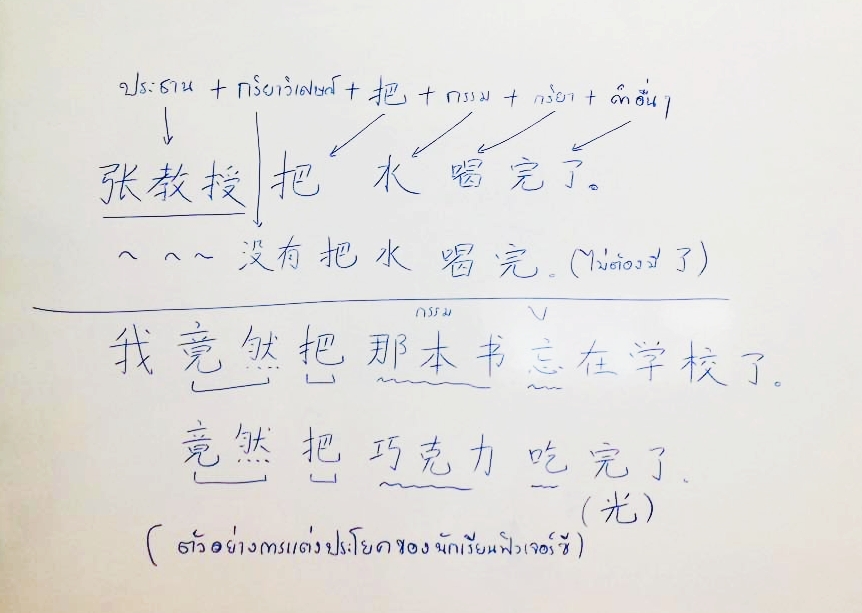 ประธาน + กริยาวิเศษณ์ + 把 + กรรม + กริยา + คำอื่นๆ
张教授把 水 喝完了。
~ ~ ~ 没有把水 喝完。(ไม่ต้องมี 了)
กรรม V
我竟然把那本书忘在学校了。
竟然把巧克力吃完了.
(光)
(ตัวอย่างการแต่งประโยคของนักเรียนฟิวเจอร์ซี)